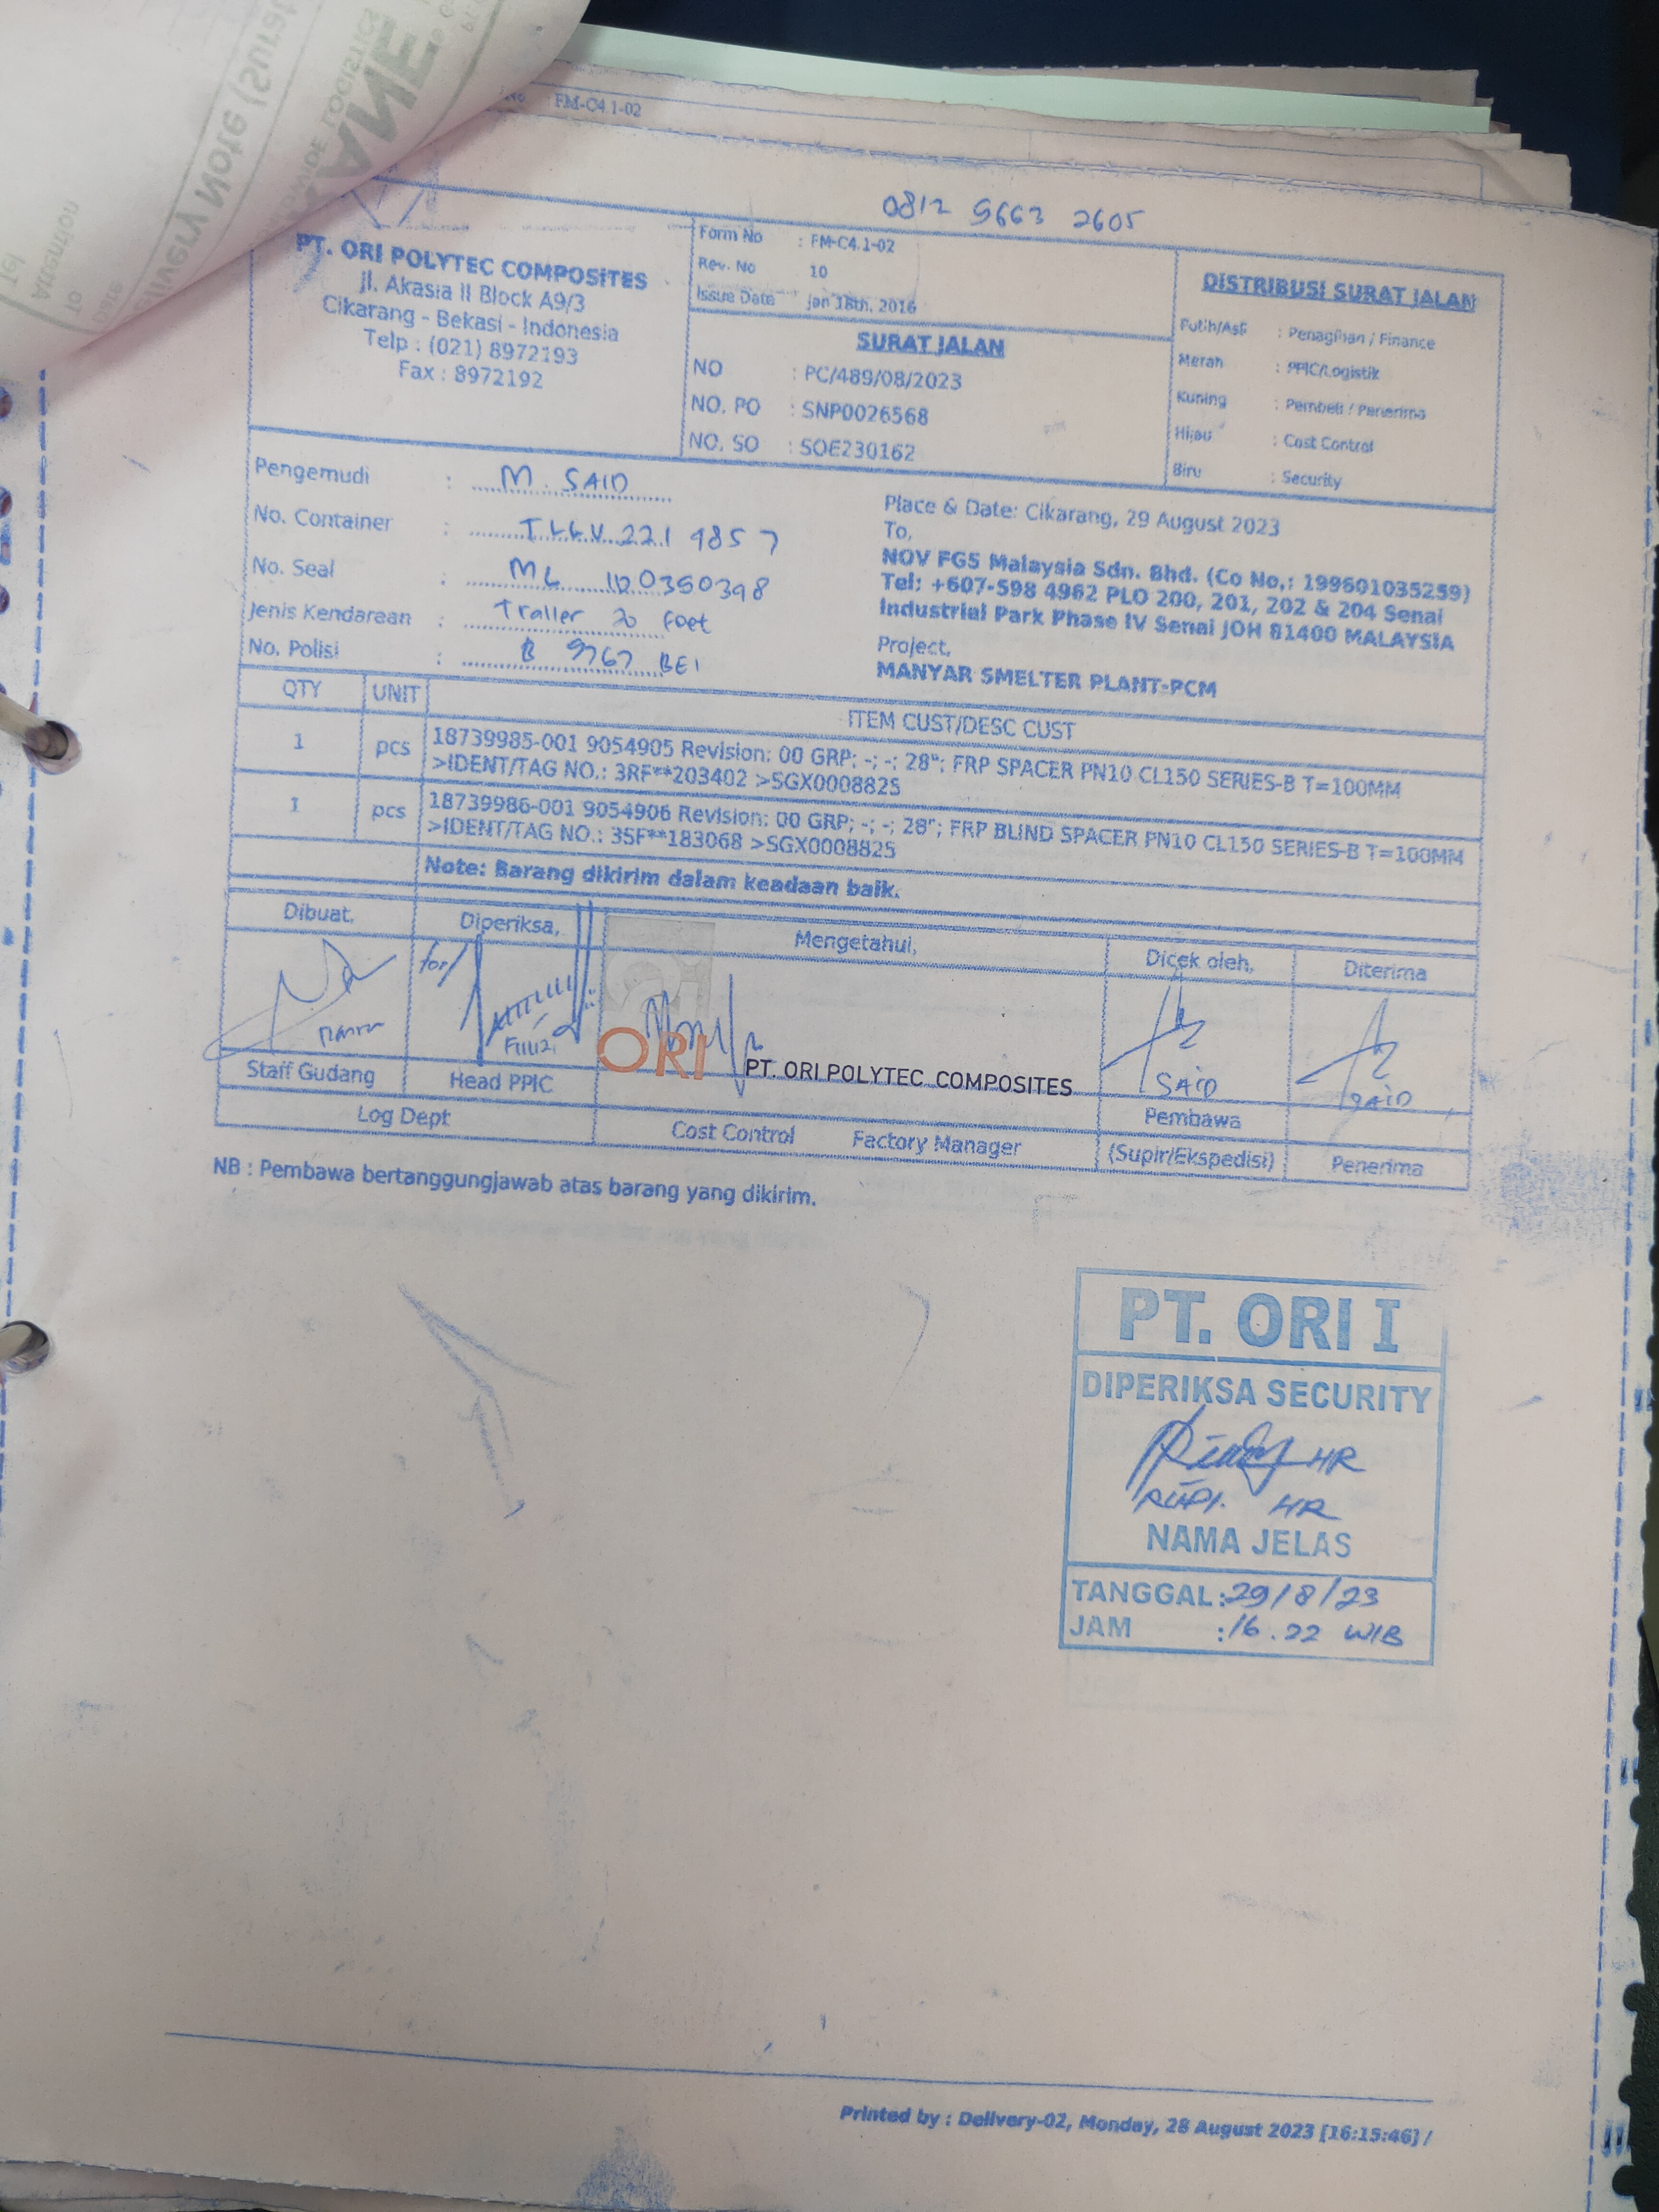 No : FM-C4.1-02
0812 5663 2605
PT. ORI POLYTEC COMPOSITES
Jl. Akasia II Block A9/3
Cikarang - Bekasi - Indonesia
Telp : (021) 8972193
Fax : 8972192
Form No : FM-C4.1-02
Rev. No 10
Issue Date Jan 18th, 2016
SURAT JALAN
NO : PC/489/08/2023
NO. PO : SNP0026568
NO. SO : SOE230162
DISTRIBUSI SURAT JALAN
Putih/Asli : Penagihan / Finance
Merah : PPIC/Logistik
Kuning : Pembeli / Penerima
Hijau : Cost Control
Biru : Security
Pengemudi : M. SAID
No. Container : 221 4857
No. Seal : ML 0350398
Jenis Kendaraan : Trailer 20 Foet
No. Polisi : B 9767 BEI
Place & Date: Cikarang, 29 August 2023
To,
NOV FGS Malaysia Sdn. Bhd. (Co No,: 199601035259)
Tel: +607-598 4962 PLO 200, 201, 202 & 204 Senai
Industrial Park Phase IV Senai JOH 81400 MALAYSIA
Project,
MANYAR SMELTER PLANT-PCM
QTY UNIT ITEM CUST/DESC CUST
1 pcs 18739985-001 9054905 Revision: 00 GRP; -; -; 28"; FRP SPACER PN10 CL150 SERIES-B T=100MM
>IDENT/TAG NO.: 3RF**203402 >SGX0008825
1 pcs 18739986-001 9054906 Revision: 00 GRP; -; -; 28"; FRP BLIND SPACER PN10 CL150 SERIES-B T=100MM
>IDENT/TAG NO.: 3SF**183068 >SGX0008825
Note: Barang dikirim dalam keadaan baik.
Dibuat, Diperiksa, Mengetahui, Dicek oleh, Diterima
for/
ORI PT. ORI POLYTEC COMPOSITES
SAID SAID
Staff Gudang Head PPIC Pembawa
Log Dept Cost Control Factory Manager (Supir/Ekspedisi) Penerima
NB : Pembawa bertanggungjawab atas barang yang dikirim.
PT. ORI I
DIPERIKSA SECURITY
HR
RUDI. HR
NAMA JELAS
TANGGAL :29/8/23
JAM :16.22 WIB
Printed by : Delivery-02, Monday, 28 August 2023 [16:15:46] /